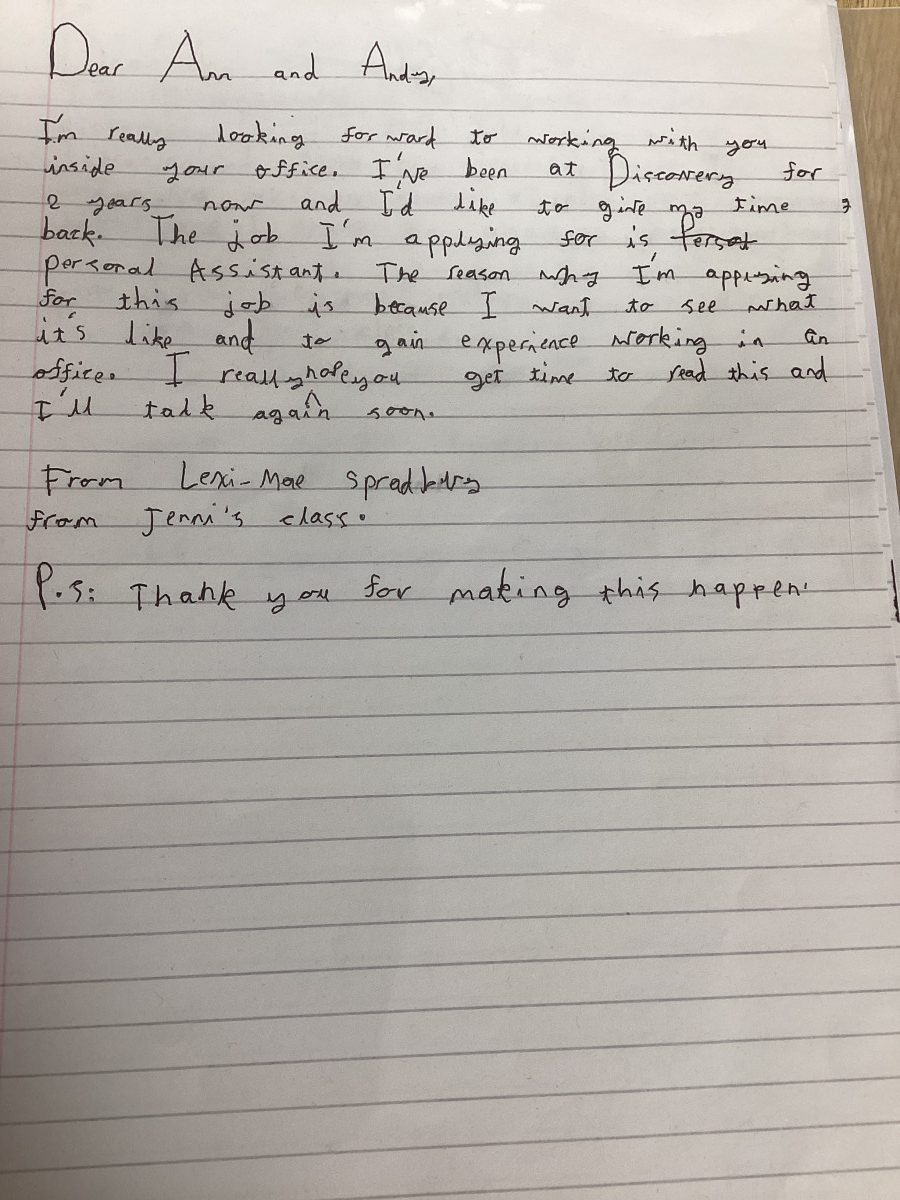 Dear Ann and Andy,
I'm really looking forward to working with you
inside your office. I've been at Discovery for
2 years now and I'd like to give my time
back. The job I'm applying for is
personal Assistant. The reason why I'm applying
for this job is because I want to see what
it's like and to gain experience working in an
office. I really hope you get time to read this and
I'll talk again soon.
From Lexi-Mae Spradbury
from Jenni's class.
P.S: Thank you for making this happen.